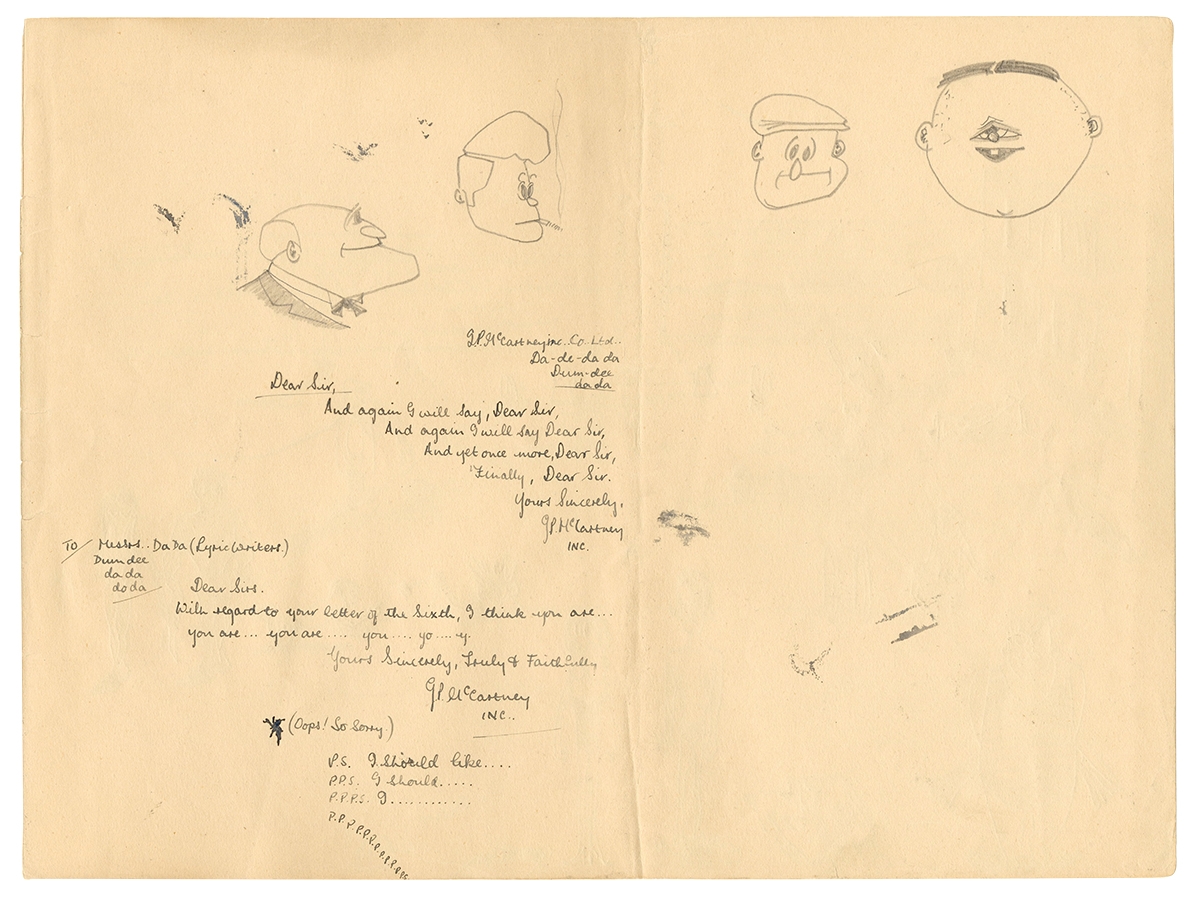 J.P. McCartney inc.. Co. Ltd..
Da-de-da da
Dum-dee
da da
Dear Sir,
And again I will say, Dear Sir,
And again I will say Dear Sir,
And yet once more, Dear Sir,
Finally, Dear Sir.
Yours Sincerely,
J.P. McCartney
INC.
TO/ Messrs.. Da Da (Lyric Writers.)
Dum dee
da da
do da
Dear Sirs.
With regard to your letter of the Sixth, I think you are...
you are... you are.... you.... yo.... y.
Yours Sincerely, Truly & Faithfully
J.P. McCartney
INC..
(Oops! So Sorry.)
P.S. I should like....
P.P.S. I should.....
P.P.P.S. I............
P.P.P.P.P.P.P.P.P.P.P.P.P.S.